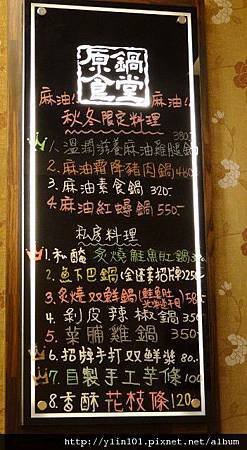 原鍋
食堂
麻油! 麻油!
秋冬限定料理
1. 溫潤滋養麻油雞腿鍋 380
2. 麻油霜降豬肉鍋 460
3. 麻油素食鍋 320-
4. 麻油紅蟳鍋 550-
私房料理
1. 私釀 炙燒鮭魚肚鍋 350
2. 魚下巴鍋(全僅招牌)250
3. 炙燒双鮮鍋 (鮭魚肚) 580-
4. 剝皮辣椒鍋 350
5. 菜脯雞鍋 350
6. 招牌手打双鮮漿 80.-
7. 自製手工芋條
8. 香酥花枝條 120
http://ylin101.pixnet.net/album